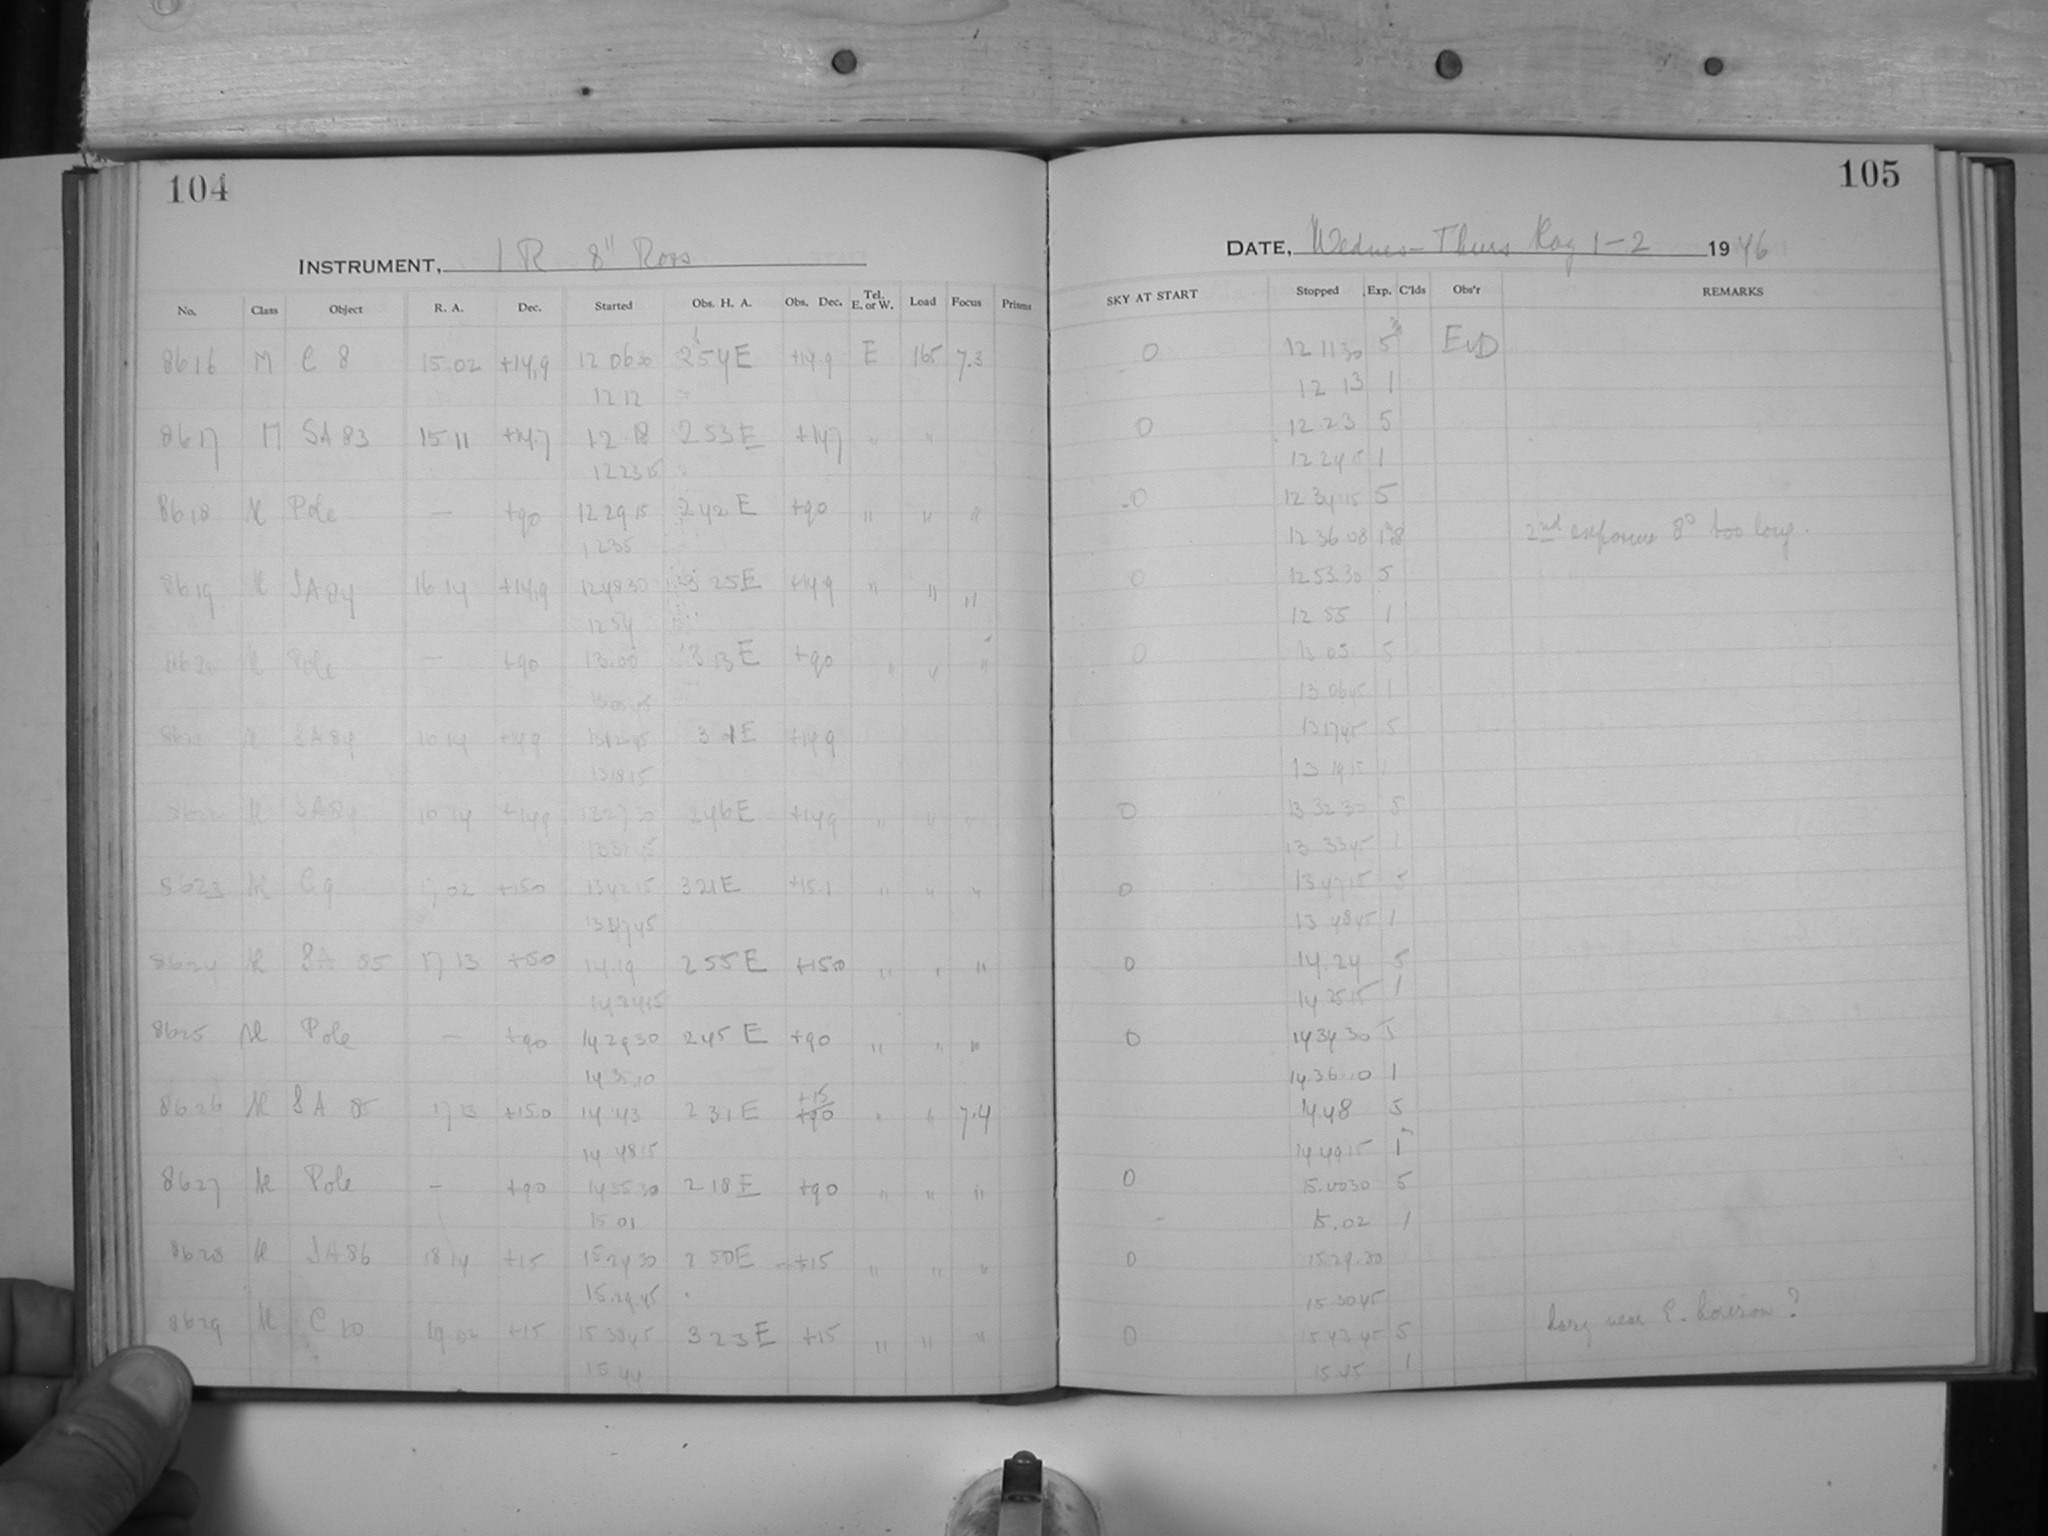 104
INSTRUMENT, IR 8" Ross
No. Class Object R. A. Dec. Started Obs. H. A. Obs. Dec. Tel. E. or W. Load Focus Prisms
8616 M C 8 15.02 +14.9 12 06 30 2 54 E +14.9 E 165 7.3
12 12
8617 M SA 83 15 11 +14.7 12 18 2 53 E +14.7 " "
12 23 15
8618 M Pole — +90 12 29 15 2 42 E +90 " " "
12 35
8619 M SA 84 16 14 +14.9 12 48 30 3 25 E +14.9 " " "
12 54
8620 M Pole — +90 13.00 3 13 E +90 " " "
13 05 45
M SA 84 16 14 +14.9 13 12 45 +14.9
13 18 15
8622 M SA 84 16 14 +14.9 13 27 30 2 46 E +14.9 " "
8623 M C 9 17,02 +15.0 13 42 15 3 21 E +15.1 " " "
13 47 45
8624 M SA 85 17 13 +15.0 14.19 2 55 E +15.0 " " "
14 24 15
8625 M Pole — +90 14 29 30 2 45 E +90 " " "
14 35 10
8626 M SA 85 17 13 +15.0 14 43 2 31 E +15 " " 7.4
14 48 15
8627 M Pole — +90 14 55 30 2 18 E +90 " " "
15 01
8628 M SA 86 18 14 +15 15 24 30 2 50 E +15 " " "
15.29.45
8629 M C 10 19 02 +15 15 38 45 3 23 E +15 " " "
15 44
105
DATE, Wednes-Thurs May 1-2 1946
SKY AT START Stopped Exp. C'lds Obs'r REMARKS
0 12 11 30 5m EvD
12 13 1
0 12 23 5
12 24 15 1
0 12 34 15 5
12 36 08 1m8 2nd exposure 8s too long.
0 12 53 30 5
12 55 1
0 13 05 5
13 06 45 1
13 17 45 5
13 19 15 1
0 13 32 30 5
13 33 45 1
0 13 47 15 5
13 48 45 1
0 14.24 5
14 25 15 1
0 14 34 30 5
14.36.10 1
14.48 5
14 49 15 1
0 15.00 30 5
15.02 1
0 15.29.30
15.30 45
0 15 43 45 5 near E. horizon?
15 45 1